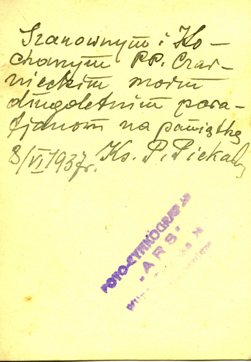 Szanownym i Ko-
chanym PP. Czar-
nieckim moim
długoletnim para-
fjanom na pamiątkę
8/VI 1937r. Ks. P. Piekal
FOTO-CYNKOGRAF
"ARS"